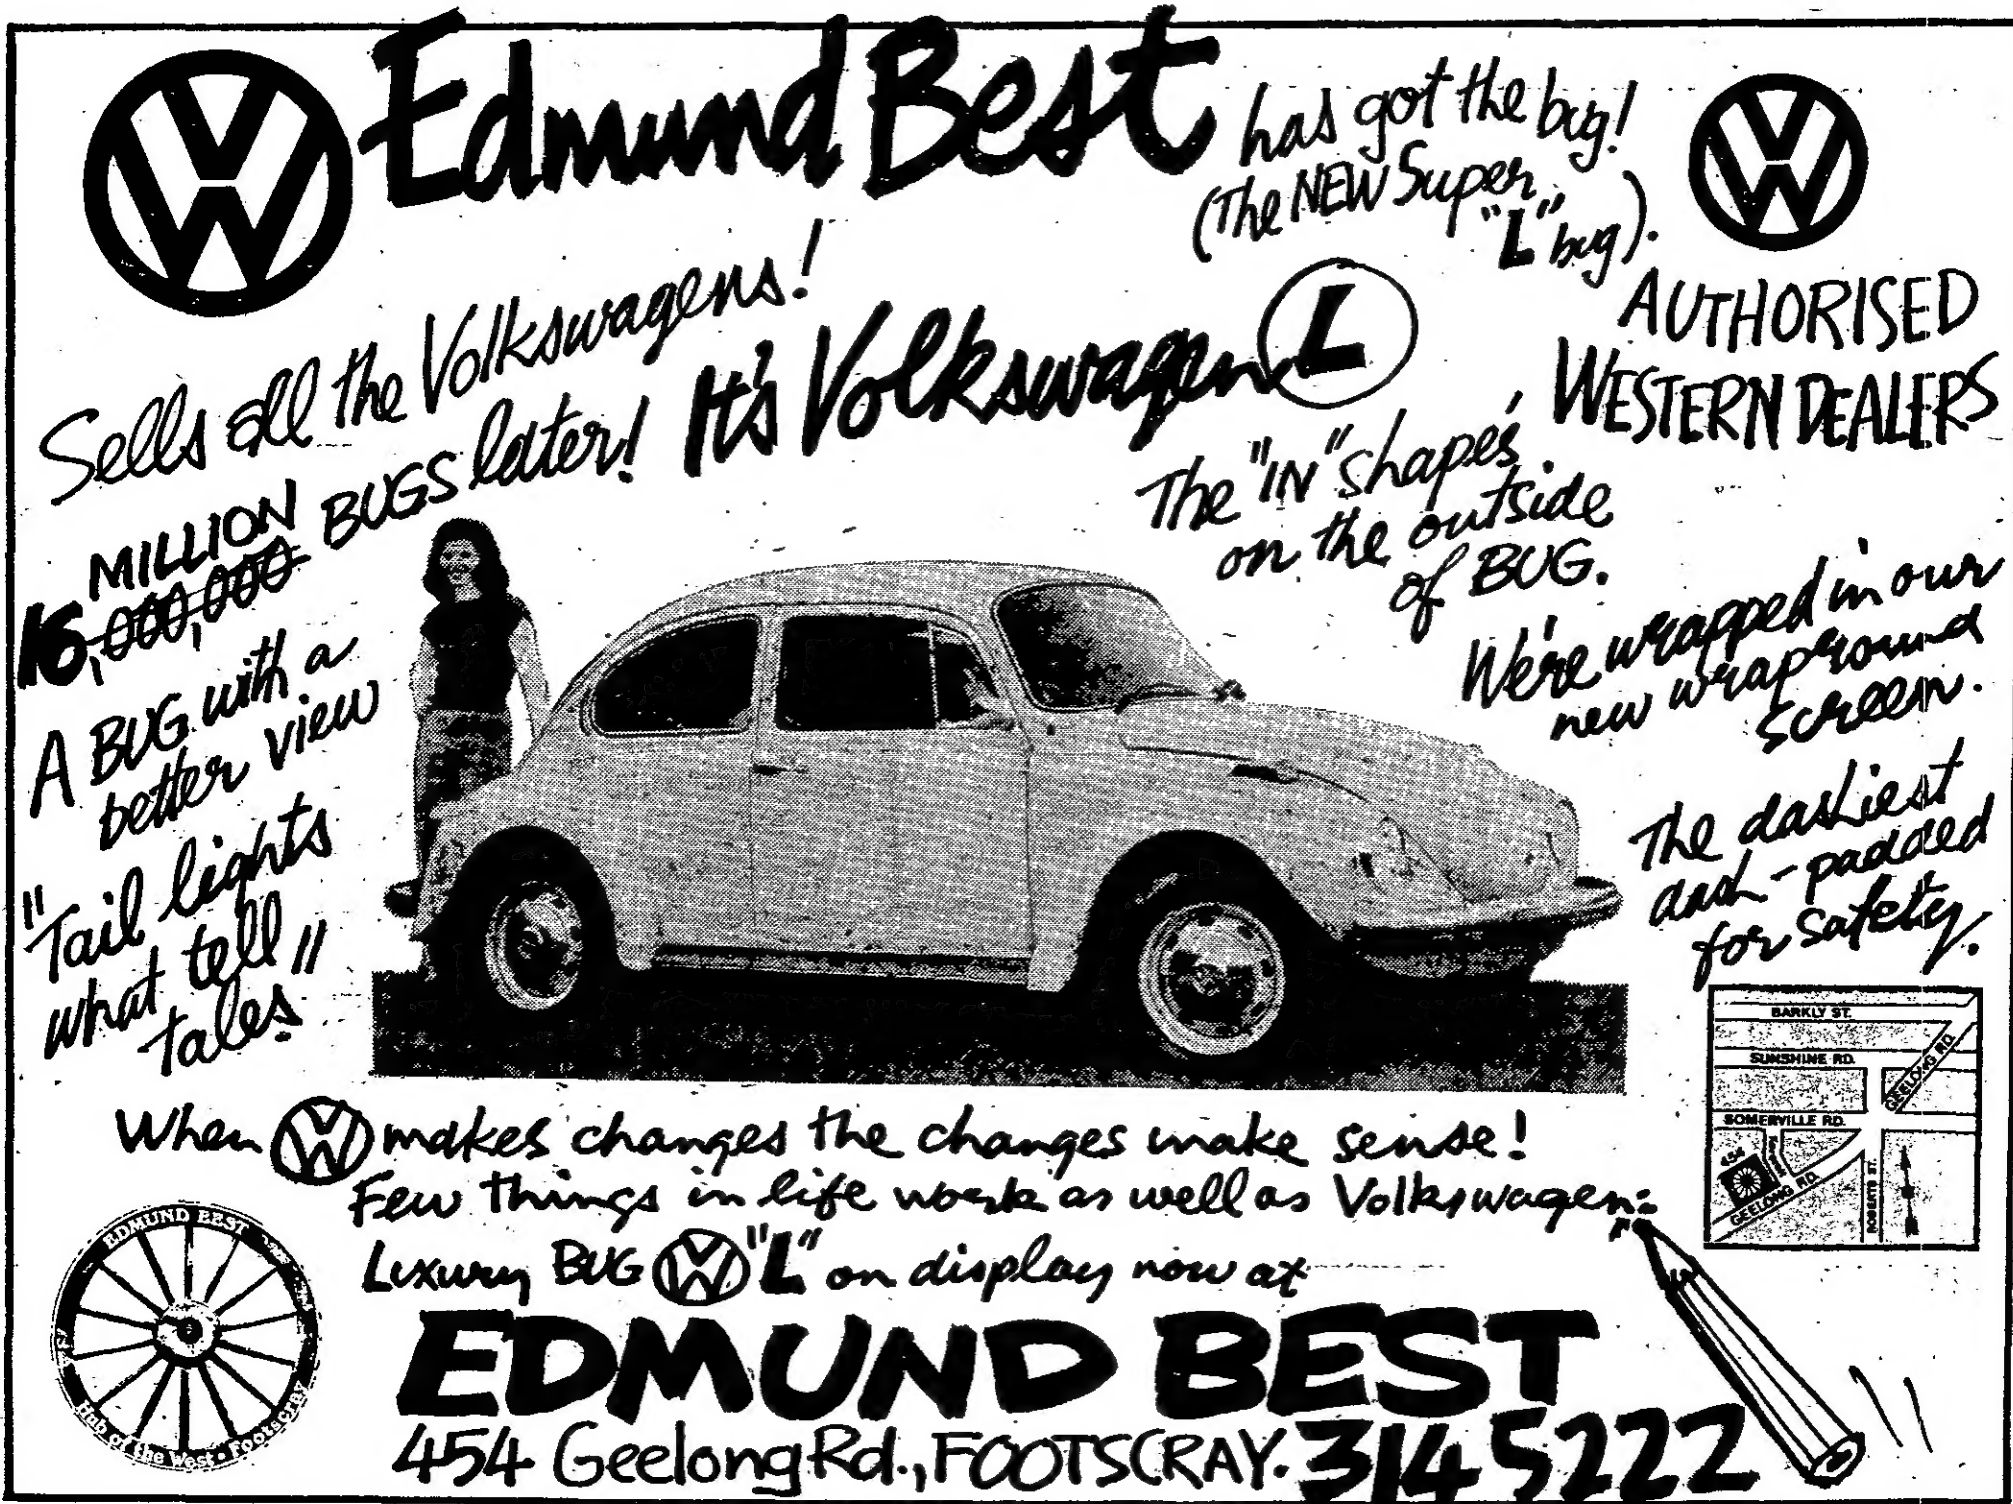 Edmund Best has got the bug!
(The NEW Super
"L" bug).
AUTHORISED
WESTERN DEALERS
Sells all the Volkswagens!
16,000,000 MILLION BUGS later! It's Volkswagen L
The "IN" shape's
on the outside
of BUG.
We're wrapped in our
new wrapround
screen.
A BUG with a
better view
"Tail lights
what tell
tales"
The dashiest
dash-padded
for safety.
BARKLY ST.
SUNSHINE RD.
GEELONG RD.
SOMERVILLE RD.
454
GEELONG RD.
ROBERTS ST.
When VW makes changes the changes make sense!
Few things in life work as well as Volkswagen:
Luxury BUG VW "L" on display now at
EDMUND BEST
Hub of the West • Footscray
EDMUND BEST
454 Geelong Rd., FOOTSCRAY. 314 5222